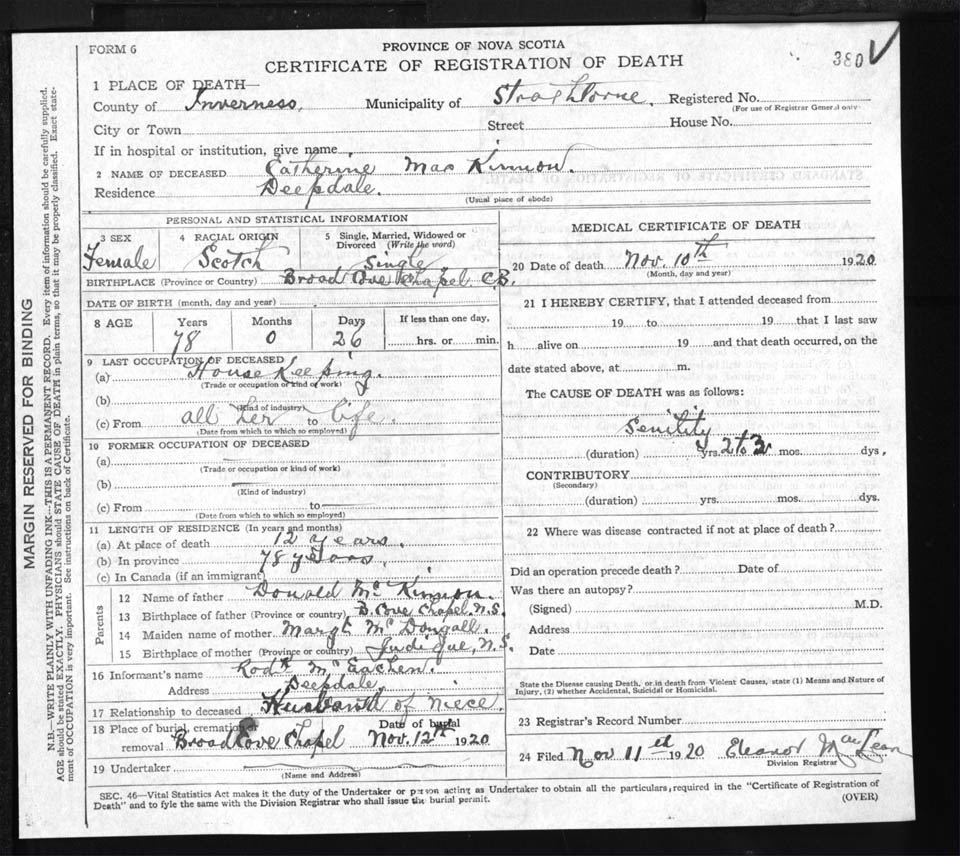 FORM 6
PROVINCE OF NOVA SCOTIA
CERTIFICATE OF REGISTRATION OF DEATH
380 V
1 PLACE OF DEATH—
County of Inverness. Municipality of Strathlorne. Registered No.
(For use of Registrar General only)
City or Town Street House No.
If in hospital or institution, give name
2 NAME OF DECEASED Catherine Mac Kinnon.
Residence Deepdale.
(Usual place of abode)
PERSONAL AND STATISTICAL INFORMATION
3 SEX Female
4 RACIAL ORIGIN Scotch
5 Single, Married, Widowed or Divorced (Write the word) Single
BIRTHPLACE (Province or Country) Broad Cove Chapel C.B.
DATE OF BIRTH (month, day and year)
8 AGE Years Months Days If less than one day,
78 0 26 hrs. or min.
9 LAST OCCUPATION OF DECEASED
(a) House Keeping.
(Trade or occupation or kind of work)
(b)
(Kind of industry)
(c) From all her to life.
(Date from which to which so employed)
10 FORMER OCCUPATION OF DECEASED
(a)
(Trade or occupation or kind of work)
(b)
(Kind of industry)
(c) From to
(Date from which to which so employed)
11 LENGTH OF RESIDENCE (In years and months)
(a) At place of death 12 years.
(b) In province 78 years.
(c) In Canada (if an immigrant)
Parents
12 Name of father Donald Mc Kinnon.
13 Birthplace of father (Province or country) B. Cove Chapel. N.S.
14 Maiden name of mother Margt Mc Dougall.
15 Birthplace of mother (Province or country) Judique, N.S.
16 Informant's name Rodk Mc Eachen.
Address Deepdale
17 Relationship to deceased Husband of niece.
18 Place of burial, cremation or removal Broad Cove Chapel Date of burial Nov. 12th 1920
19 Undertaker
(Name and Address)
MEDICAL CERTIFICATE OF DEATH
20 Date of death Nov. 10th 1920
(Month, day and year)
21 I HEREBY CERTIFY, that I attended deceased from
19 to 19 that I last saw
h alive on 19 and that death occurred, on the
date stated above, at m.
The CAUSE OF DEATH was as follows:
Senility
(duration) yrs. 2 to 3 mos. dys,
CONTRIBUTORY
(Secondary)
(duration) yrs. mos. dys.
22 Where was disease contracted if not at place of death?
Did an operation precede death? Date of
Was there an autopsy?
(Signed) M.D.
Address
Date
State the Disease causing Death, or in death from Violent Causes, state (1) Means and Nature of
Injury, (2) whether Accidental, Suicidal or Homicidal.
23 Registrar's Record Number
24 Filed Nov 11th 1920 Eleanor MacLean
Division Registrar
SEC. 46—Vital Statistics Act makes it the duty of the Undertaker or person acting as Undertaker to obtain all the particulars, required in the "Certificate of Registration of
Death" and to fyle the same with the Division Registrar who shall issue the burial permit.
(OVER)
MARGIN RESERVED FOR BINDING
N.B.—WRITE PLAINLY WITH UNFADING INK—THIS IS A PERMANENT RECORD. Every item of information should be carefully supplied.
AGE should be stated EXACTLY. PHYSICIANS should STATE CAUSE OF DEATH in plain terms, so that it may be properly classified. Exact state-
ment of OCCUPATION is very important. See instructions on back of Certificate.